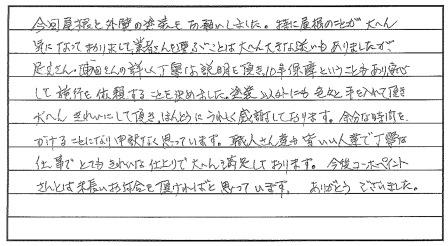 今回屋根と外壁の塗装をお願いしました。特に屋根のことが大へん
気になっておりまして業者さんを選ぶことは大へん大きな迷いもありましたが
足立さん・蒲田さんの詳しい丁寧な説明を頂き、10年保障ということもあり安心
して施行を依頼することを決めました。塗装以外にも色々と手を入れて頂き
大へんきれいにして頂き、ほんとうにうれしく感謝しております。余分な時間を
かけることになり申訳なく思っています。職人さん達も皆いい人達で丁寧な
仕事でとてもきれいな仕上りで大へん満足しております。今後コーホペイント
さんとは末長いお付合を頂ければと思っています。ありがとうございました。